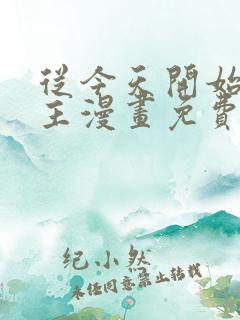 從今天開始
王漫畫免費
纪小然
未任同意禁止转载